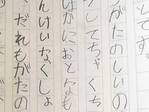 とてす。
がたのしいの
してちゃくち
はかにおとなも
んけいなくしょ
だれもがたの